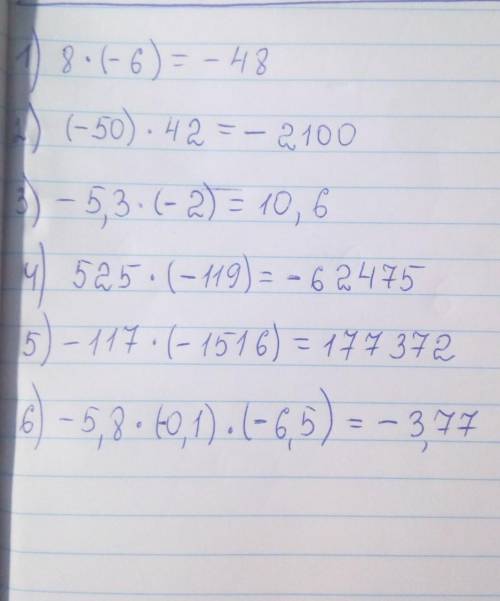 1) 8 · (-6) = -48
2) (-50) · 42 = -2100
3) -5,3 · (-2) = 10,6
4) 525 · (-119) = -62475
5) -117 · (-1516) = 177372
6) -5,8 · (-0,1) · (-6,5) = -3,77